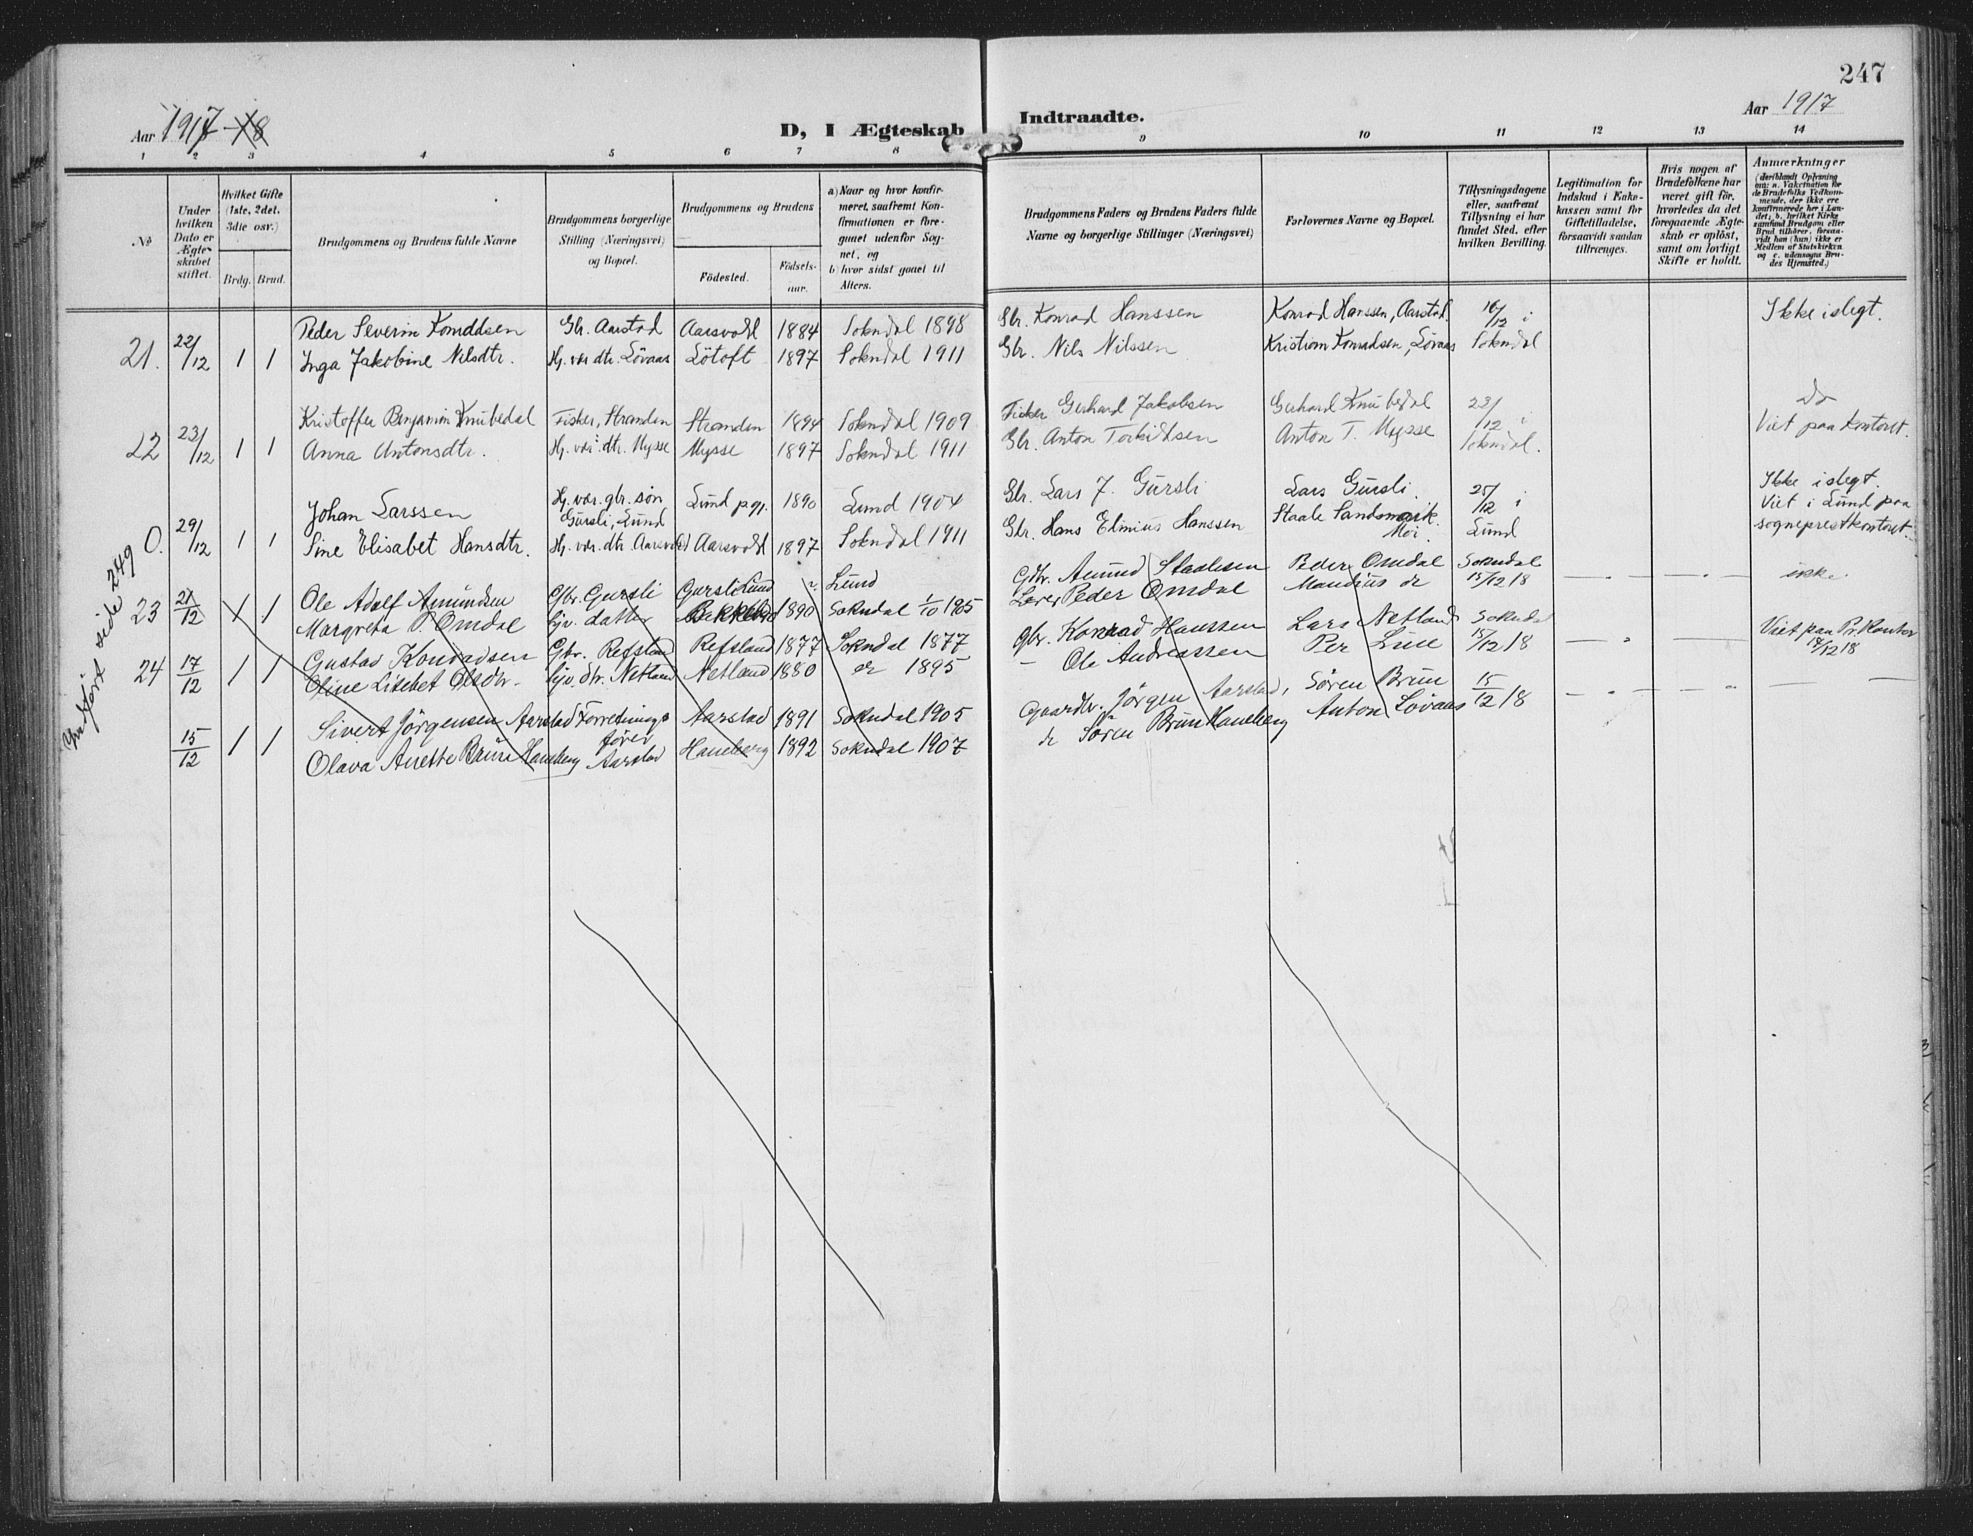 247
Aar 1917-18
D, I Ægteskab Indtraadte.
Aar 1917
1 2 3 4 5 6 7 8 9 10 11 12 13 14
№
Under hvilken Dato er Ægteskabet stiftet.
Hvilket Gifte (1ste, 2det, 3die osv.)
Brdg. Brud.
Brudgommens og Brudens fulde Navne
Brudgommens borgerlige Stilling (Næringsvei) og Bopæl.
Brudgommens og Brudens
Födested.
Födsels-aar.
a) Naar og hvor konfirmeret, saafremt Konfirmationen er foregaaet udenfor Sognet, og
b) hvor sidst gaaet til Alters.
Brudgommens Faders og Brudens Faders fulde Navne og borgerlige Stillinger (Næringsvei)
Forlovernes Navne og Bopæl.
Tillysningsdagene eller, saafremt Tillysning ei har fundet Sted, efter hvilken Bevilling.
Legitimation for Indskud i Enkekassen samt for Giftetilladelse, forsaavidt saadan tiltrænges.
Hvis nogen af Brudefolkene har været gift før, hvorledes da det foregaaende Ægteskab er opløst, samt om lovligt Skifte er holdt.
Anmærkninger (deriblandt Oplysning om: a. Vakcination for de Brudefolks Vedkommende, der ikke ere konfirmerede her i Landet; b. hvilket Kirkesamfund Brudgom eller Brud tilhører, forsaavidt han (hun) ikke er Medlem af Statskirken og c. udensogns Brudes Hjemsted.)
21. 22/12 1 1
Peder Severin Konradsen Gbr. Aarstad Aarsvold 1884 Sokndal 1898 Gbr. Konrad Hanssen Konrad Hanssen, Aarstad. 16/12 i Ikke i slegt.
Inga Jakobine Nilsdtr. Hj. vær. dtr. Lövaas Lötoft 1897 Sokndal 1911 Gbr. Nils Nilssen Kristian Konradsen, Lövaas Sokndal
22 23/12 1 1
Kristoffer Benjamin Knubedal Fisker, Stranden Stranden 1894 Sokndal 1909 Fisker Gerhard Jakobsen Gerhard Knubedal 23/12 i Do
Anna Antonsdtr. Hj. vær. dtr. Mysse Mysse 1897 Sokndal 1911 Gbr. Anton Torkildsen Anton T. Mysse Sokndal. Viet paa kontoret.
0. 29/12 1 1
Johan Larssen Hj. vær. gbr. søn Gursli, Lund Lund pgj. 1890 Lund 1904 Gbr. Lars J. Gursli Lars Gursli. 25/12 i Ikke i slegt.
Sine Elisabet Hansdtr. Hj. vær. dtr. Aarsvold Aarsvold 1897 Sokndal 1911 Gbr. Hans Elinius Hanssen Staale Sandsmark. Moi. Lund Viet i Lund paa sogneprestkontoret.
Indført side 249
23 21/12 1 1
Ole Adolf Amundsen Gbr. Gursli Gursli Lund Lund Gdbr. Amund Staalesen Peder Omdal Sokndal ikke.
Margreta P. Omdal hjv. datter 1890 Sokndal 1/10 1905 Lærer Peder Omdal Maudius do 15/12 18
24 17/12 1 1
Gustav Konradsen Gbr. Refsland Refsland 1877 Sokndal 1877 gbr. Konrad Hanssen Lars Netland Sokndal Viet paa Pr. Kontor
Oline Lisebet Olsdtr. hjv. dtr. Netland Netland 1880 do 1895 – Ole Andreassen Per Line 15/12 18
15/12 1 1
Sivert Jörgensen Aarstad Forretnings fører Aarstad 1891 Sokndal 1905 Gaardbr. Jörgen Aarstad, Sören Brün 15/12 18
Olava Anette Brün Haneberg Aarstad Haneberg 1892 Sokndal 1907 do Sören Brün Haneberg Anton Lövaas